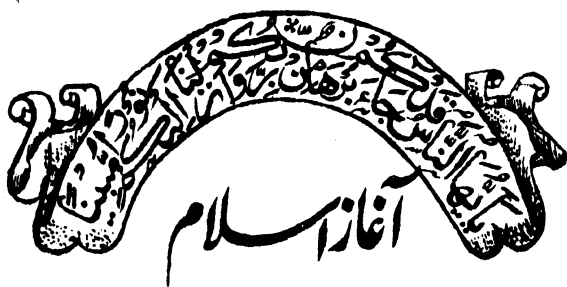 يايها الناس قد جاءكم برهن من ربكم وانزلنا اليكم نورا مبينا
آغاز اسلام